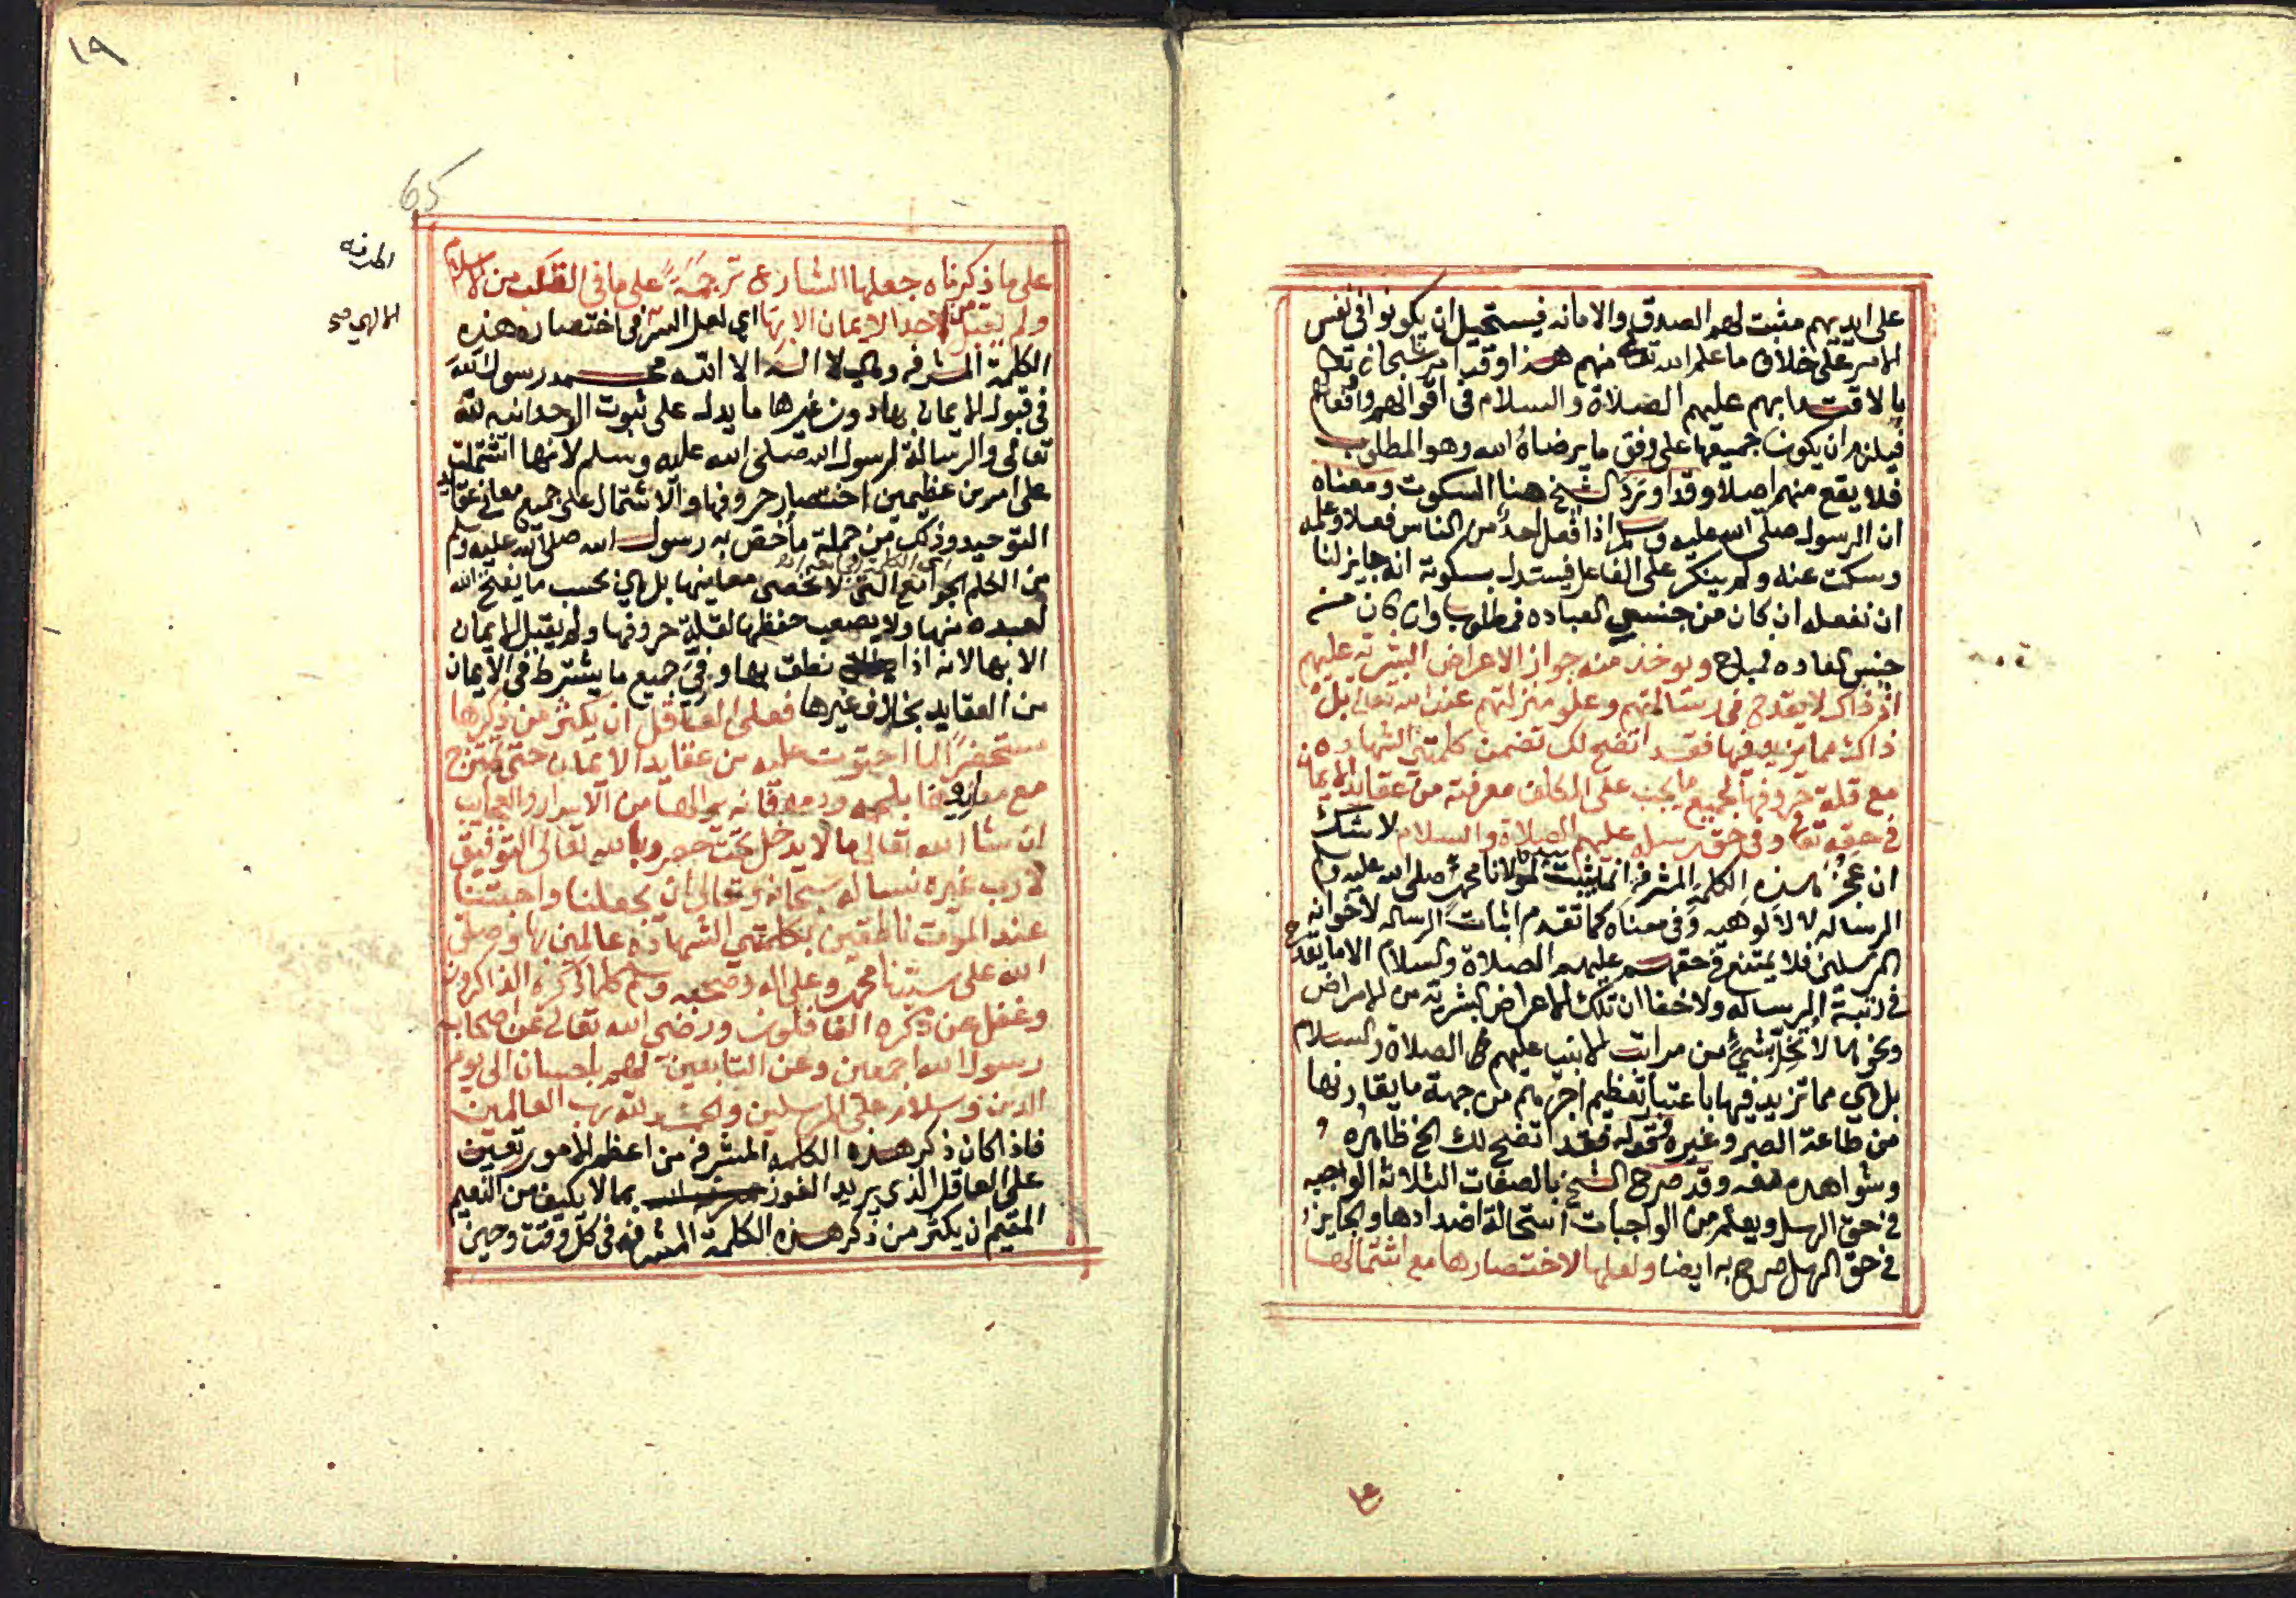 على ايديهم مثبت لهم الصدق والامانه فيستحيل ان يكونوا في نفس
الامر على خلاف ما علم الله تعالى منهم هذا وقد امر سبحانه تعالى
بالاقتدا بهم عليهم الصلاة والسلام في اقوالهم وافعالهم
فيلزم ان يكون جميعها على وفق ما يرضاه الله وهو المطلوب
فلا يقع منهم اصلا وقد اورد الشيخ هنا السكوت ومعناه
ان الرسول صلى الله عليه وسلم اذا فعل احد من الناس فعلا وعلمه
وسكت عنه ولم ينكر على الفاعل فيستدل بسكوته انه جايز لنا
ان نفعله ان كان من جنس العباده فمطلوب وان كان من
جنس العاده فمباح ويوخذ منه جواز الاعراض البشرية عليهم
اذ ذاك لا يقدح في رسالتهم وعلو منزلتهم عند الله تعالى بل
ذاك مما يزيد فيها فقد اتضح لك تضمن كلمتي الشهاده
مع قلة حروفها لجميع ما يجب على المكلف معرفته من عقايد الايمان
في حقه تعالى وفي حق رسله عليهم الصلاة والسلام لا شك
ان عجز هذه الكلمة المشرفه انما يثبت لمولانا محمد صلى الله عليه وسلم
الرساله لا الالوهيه وفي معناه كما تقدم اثبات الرساله لاخوانه
المرسلين فلا يمتنع في حقهم عليهم الصلاة والسلام الا ما يقدح
في رتبة الرساله ولا خفا ان تلك الاعراض البشرية من الامراض
ونحوها لا تخل بشيء من مراتب الانبيا عليهم الصلاة والسلام
بل هي مما تزيد فيها باعتبار تعظيم اجرهم من جهة ما يقارنها
من طاعة الصبر وغيره قوله فقد اتضح لك الخ ظاهره
وشواهده معه وقد صرح الشيخ بالصفات الثلاثة الواجبه
في حق الرسل ويعلم من الواجبات استحالة اضدادها والجايز
في حق الرسل صرح به ايضا ولعلها لاختصارها مع اشتمالها
١٩
65
على ما ذكرناه جعلها الشارع ترجمة على ما في القلب من الاسلام
ولم يقبل من احد الايمان الا بها اي لعل السر في اختصار هذه
الكلمة المشرفه وهي لا اله الا الله محمد رسول الله
في قبول الايمان بها دون غيرها ما يدل على ثبوت الوحدانيه لله
تعالى والرسالة لرسول الله صلى الله عليه وسلم لانها اشتملت
على امرين عظيمين اختصار حروفها والاشتمال على جميع معاني عقايد
التوحيد وذلك من جملة ما خص به رسول الله صلى الله عليه وسلم
من الكلم الجوامع التي لا تحصى معاينها بل هي بحسب ما يفتح الله
لعبده منها ولا يصعب حفظها لقلة حروفها ولم يقبل الايمان
الا بها لانه اذا نطق بها وفي جميع ما يشترط في الايمان
من العقايد بخلاف غيرها فعلى العاقل ان يكثر من ذكرها
مستحضرا لما احتوت عليه من عقايد الايمان حتى تمتزج
مع معناها بلحمه ودمه فانه يرى لها من الاسرار والعجايب
ان شا الله تعالى ما لا يدخل تحت حصر وبالله تعالى التوفيق
لا رب غيره نساله سبحانه وتعالى ان يجعلنا واحبتنا
عند الموت ناطقين بكلمتي الشهادة عالمين بها وصلى
الله على سيدنا محمد وعلى اله وصحبه وسلم كلما ذكره الذاكرون
وغفل عن ذكره الغافلون ورضى الله تعالى عن اصحاب
رسول الله اجمعين وعن التابعين لهم باحسان الى يوم
الدين وسلام على المرسلين والحمد لله رب العالمين
فاذا كان ذكر هذه الكلمه المشرفه من اعظم الامور تعين
على العاقل الذي يريد الفوز بما لا يكيف من النعيم
المقيم ان يكثر من ذكر هذه الكلمة المشرفه في كل وقت وحين